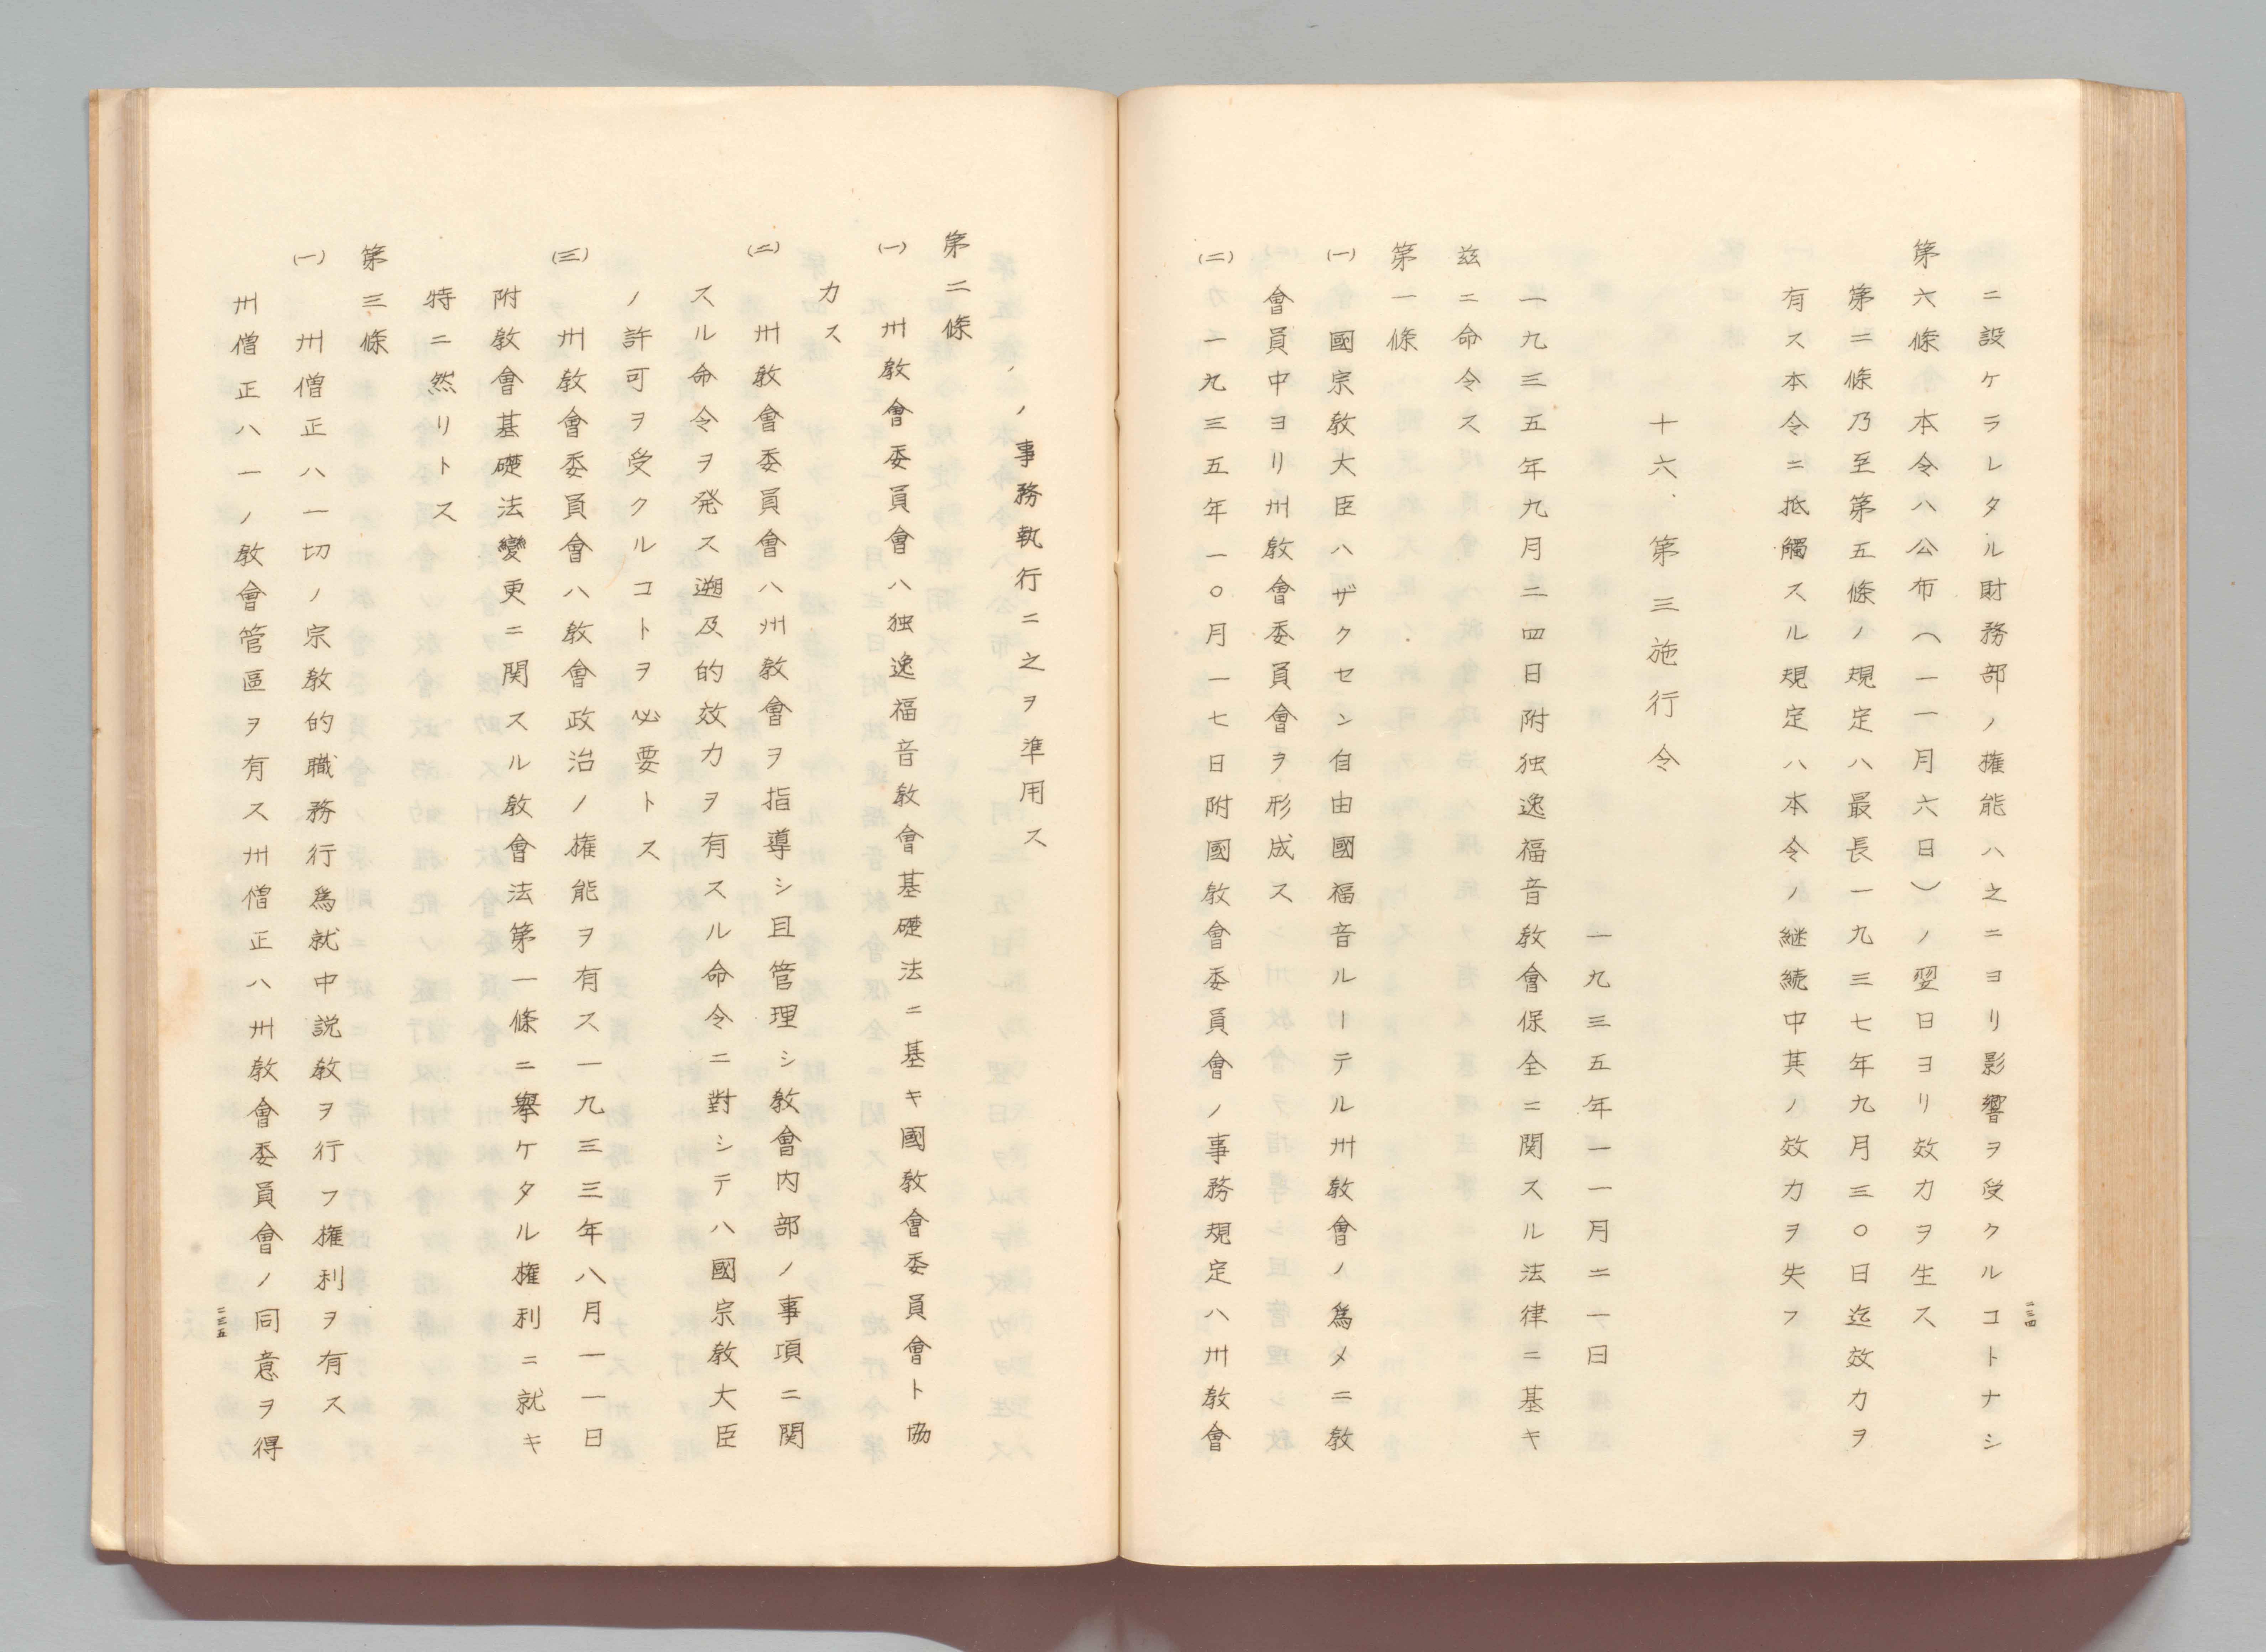 ニ設ケラレタル財務部ノ権能ハ之ニヨリ影響ヲ受クルコトナシ
第六條　本令ハ公布（一一月六日）ノ翌日ヨリ效力ヲ生ス
第二條乃至第五條ノ規定ハ最長一九三七年九月三〇日迄效力ヲ
有ス本令ニ抵觸スル規定ハ本令ノ継続中其ノ效力ヲ失フ
十六、第三施行令
一九三五年一一月二一日
一九三五年九月二四日附独逸福音教會保全ニ関スル法律ニ基キ
茲ニ命令ス
第一條
㈠　國宗教大臣ハザクセン自由國福音ルーテル州教會ノ爲メニ教
會員中ヨリ州教會委員會ヲ形成ス
㈡　一九三五年一〇月一七日附國教會委員會ノ事務規定ハ州教會
二三四
ノ事務執行ニ之ヲ準用ス
第二條
㈠　州教會委員會ハ独逸福音教會基礎法ニ基キ國教會委員會ト協
力ス
㈡　州教會委員會ハ州教會ヲ指導シ且管理シ教會内部ノ事項ニ関
スル命令ヲ発ス遡及的效力ヲ有スル命令ニ對シテハ國宗教大臣
ノ許可ヲ受クルコトヲ必要トス
㈢　州教會委員會ハ教會政治ノ権能ヲ有ス一九三三年八月一一日
附教會基礎法變更ニ関スル教會法第一條ニ擧ケタル権利ニ就キ
特ニ然リトス
第三條
㈠　州僧正ハ一切ノ宗教的職務行爲就中説教ヲ行フ権利ヲ有ス
州僧正ハ一ノ教會管區ヲ有ス州僧正ハ州教會委員會ノ同意ヲ得
二三五